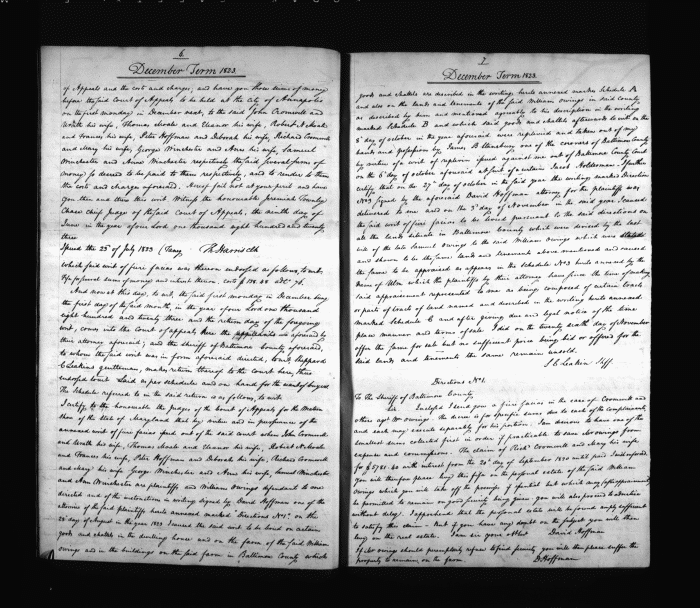 6
December Term 1823.
of Appeals and the cost and charges, and have you those sums of money
before the said Court of Appeals to be held at the City of Annapolis
on the first monday in December next, to the said John Cromwell and
Urath his wife, Thomas Moale and Eleanor his wife, Robert N. Moale
and Frances his wife, Peter Hoffman and Deborah his wife, Richard Cromwell
and Mary his wife, George Winchester and Anne his wife, Samuel
Winchester and Anne Winchester respectively the said several sums of
money so deemed to be paid to them respectively, and to render to them
the costs and charges aforesaid. Hereof fail not at your peril and have
you then and there this writ. Witness the honourable Jeremiah Townley
Chase chief judge of the said Court of Appeals, the ninth day of
June in the year of our Lord one thousand eight hundred and twenty
three
Issued the 23d of July 1823 Th Harris clk
which said writ of fieri facias was thereon endorsed as follows, to wit.
sums of money and interest thereon. Costs $
And now at this day, to wit, the said first monday in December being
the first day of the said month, in the year of our Lord one thousand
eight hundred and twenty three and the return day of the foregoing
writ, comes into the Court of appeals, here the as aforesaid by
their attorney aforesaid; and the sheriff of Baltimore County aforesaid,
to whom the said writ was in form aforesaid directed, to wit, Sheppard
C Leakin gentleman, makes return thereof to the Court here, thus
endorsed to wit "Laid as per schedules and on hand for the want of buyers
The Schedules referred to in the said return is as follows, to wit
I certify to the honourable the Judges of the Court of Appeals for the Western
shore of the State of Maryland that by virtue and in pursuance of the
annexed writ of fieri facias issued out of the said court where John Cromwell
and Urath his wife, Thomas Moale and Eleanor his wife, Robert N. Moale
and Frances his wife, Peter Hoffman and Deborah his wife, Richard Cromwell
and Mary his wife George Winchester and Anne his wife, Samuel Winchester
and Ann Winchester are plaintiffs and William Owings defendant to me
directed and of the instructions in writing signed by David Hoffman one of the
attornies of the said plaintiffs hereto annexed marked "Directions No 1." on the
day of August in the year 1823 I caused the said writ to be levied on certain
goods and chattels in the dwelling house and on the farm of the said William
Owings and in the buildings on the said farm in Baltimore County which
7
December Term 1823.
goods and chattels are described in the writing hereto annexed marked Schedule A
and also on the lands and tenements of the said William Owings in said County
as described by him and mentioned agreeably to his description in the writing
marked Schedule B and which said goods and chattels afterwards to wit on the
8th day of October in the year aforesaid were replevied and taken out of my
hands and possession by James B one of the coroners of Baltimore County
by virtue of a writ of replevin issued against me out of Baltimore County Court
on the 6th day of october aforesaid at suit of a certain Jacob Holderman. I further
certify that on the 27th day of october in the said year the writing marked Directions
No 3 signed by the aforesaid David Hoffman attorney for the plaintiffs was
delivered to me and on the 3d day of November in the said year I caused
the said writ of fieri facias to be levied pursuant to the said directions on
all the lands tenements in Baltimore County which were devised by the last
will of the late Samuel Owings to the said William Owings which were
and shewn to be the same lands and tenements above mentioned and caused
the same to be appraised as appears in the schedule No 3 hereto annexed by the
name of Ulm which the plaintiffs by their attorney have since the time of making
said appraisement represented to me as being composed of certain tracts
or parts of tracts of land named and described in the writing hereto annexed
marked Schedule C and after giving due and legal notice of the time
place manner and terms of sale I did on the twenty sixth day of November
offer the same for sale but no sufficient price being bid or offered for the
said lands and tenements the same remains unsold.
S C Leakin Shff.
Directions No 1.
To the Sheriff of Baltimore County
Sir. Enclosed I send you a fieri facias in the case of Cromwell and
others agt Wm Owings the decree is for specific sums due to each of the complainants
and each may execute separately for his portion. I am desirous to have one of the
smallest sums collected first in order if practicable to save Mr Owings from
expense and commissions. The claim of Richd Cromwell and Mary his wife
for $ 5781.40 with interest from the 20th day of September 1820 until paid
you will therefore please levy this fifa on the personal estate of the said William
Owings which you will take off the premises if practical but which may
be permitted to remain on good security being given you will also proceed to advertise
without delay. I apprehend that the personal estate will be found amply sufficient
to satisfy this claim. But if you have any doubt on the subject you will then
levy on the real estate. I am sir your obt David Hoffman
If Mr Owings should peremptorily refuse to find security you will then please suffer the
property to remain on the farm. D. Hoffman